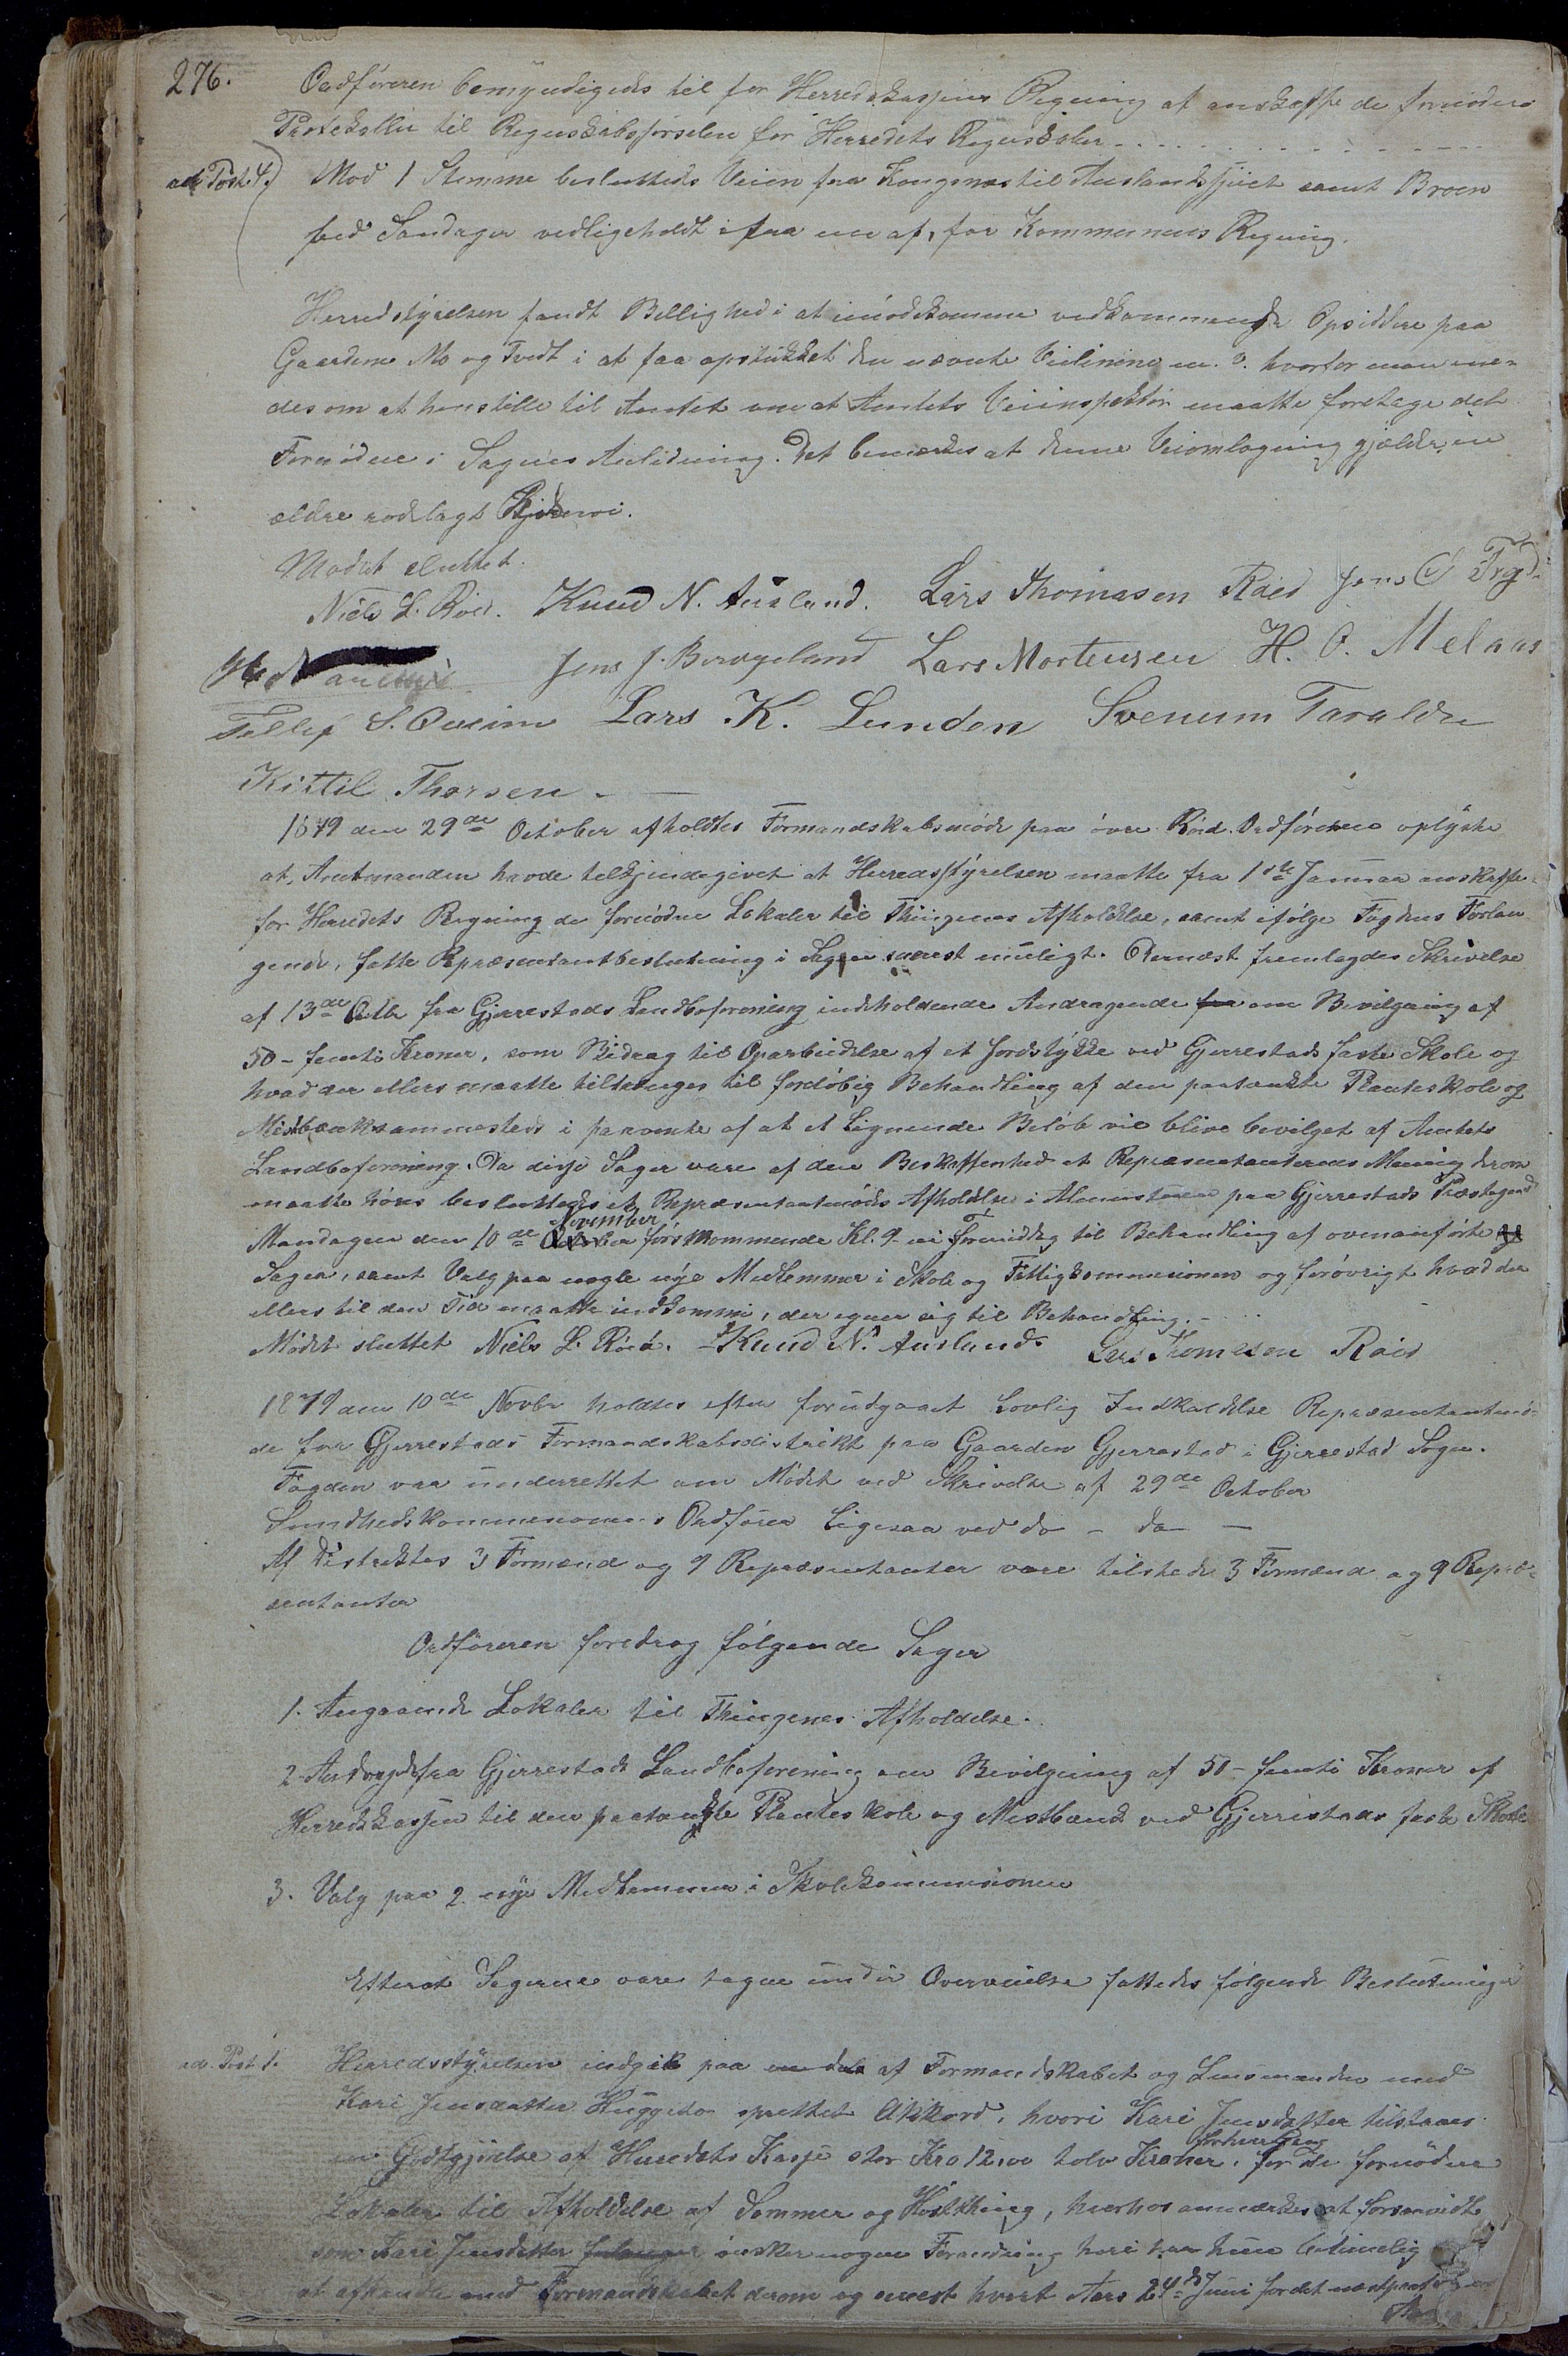 276.
Ordføreren bemyndigedes til for Herredskassens Regning at anskaffe de fornødne
Protokoller til Regnskabsførselen for Herredets Regnskaber
ad Post 4.) Mod 1 Stemme besluttedes Veien fra Kongsnæs til Auslandsfjæret samt Broen
ved Sandager vedligeholdt i fra nu af, for Kommunens Regning.
Herredstyrelsen fandt Billighed i at imødekomme vedkommende Opsiddere paa
Gaardene Mo og Tvedt i at faa opstukket den nævnte Veilinie m. v. hvorfor man ene-
des om at henstille til Amtet om at Amtets Veiinspektør maatte foretage det
Fornødne i Sagens Anledning. Det bemærkes at denne Veiomlægning gjælder en
ældre rodelagt Bygdevei.
Mødet sluttet.
Niels L. Røed. Knud N. Ausland. Lars Thomasen Røed Jens
Jens J. Bervgeland Lars Mortensen H. O. Melaas
Tellef S. Lars K. Lunden Svenum Taraldsen
Kittil Thorsen.
1879 den 29de October afholdtes Formandskabsmøde paa øvre Røed. Ordføreren oplyste
at, Amtmanden havde tilkjendegivet at Herredsstyrelsen maatte fra 1ste Januar anskaffe
for Herredets Regning de fornødne Lokaler til Thingenes Afholdelse, samt ifølge Fogdens Forlan
gende, fatte Repræsentantbeslutning i Sagen snarest muligt. Dernæst fremlagdes Skrivelse
af 13de Octbr fra Gjerrestads Landboforening indeholdende Andragende fra om Bevilgning af
50 - femti Kroner, som Bidrag til Oparbeidelse af et Jordstykke ved Gjerrestads faste Skole og
hvad der ellers maatte tiltrænges til foreløbig Behandling af den paatænkte Planteskole og
Mistbænk sammesteds i paavente af at et Lignende Beløb vil blive bevilget af Amtets
Landboforening. Da disse Sager vare af den Beskaffenhed at Repræsentanternes Mening derom
maatte høres besluttedes et Repræsentantmødes Afholdelse i Almuestuen paa Gjerrestads Præstegaard
November
Mandagen den 10de October førstkommende Kl. 9 om Formiddag til Behandling af ovenanførte og
Sager, samt Valg paa nogle nye Medlemmer i Skole og Fattigkommisionen og forøvrigt hvad der
ellers til den Tid maatte indkomme, der egner sig til Behandling.
Mødet sluttet Niels L. Røed. Knud N. Ausland. Lars Thomasen Røed
1879 den 10de Novbr holdtes efter forudgaaet Lovlig Indkaldelse Repræsentantmø-
de for Gjerrestads Formandskabsdistrikt paa Gaarden Gjerrestad i Gjerrestad Sogn.
Fogden var underrettet om Mødet ved Skrivelse af 29de October
Sundhedskommisionens Ordfører Ligesaa ved do - do -
Af Distriktes 3 Formænd og 9 Repræsentanter vare tilstede 3 Formænd og 9 Repræ-
sentanter
Ordføreren foredrog følgende Sager
1. Angaaende Lokaler til Thingenes Afholdelse.
2. Andragde fra Gjerrestads Landboforening om Bevilgning af 50 - femti Kroner af
Herredskassen til den paatænkte Planteskole og Mistbænk ved Gjerrestads faste Skole
3. Valg paa 2 nye Medlemmer i Skolekommisionen
Efterat Sagerne vare tagne under Overveielse fattedes følgende Beslutninger
ad. Post 1. Herredsstyrelsen indgik paa en del af Formandskabet og Lensmanden med
Kari Jensdatter Huggeto oprettet Akkord, hvori Kari Jensdatter tilstaaes
en Godtgjørelse af Herredets Kasse stor Kro 12,00 tolv Kroner, for de fornødne
Lokaler til Afholdelse af Sommer og Høstthing, hvorhos anmærkes at forsaavidt
som Kari Jensdatter ønsker nogen Forandring heri har hun betimelig
at afhandle med Formandskabet derom og senest hvert Aars 24de Juni for det næstpaafølgende